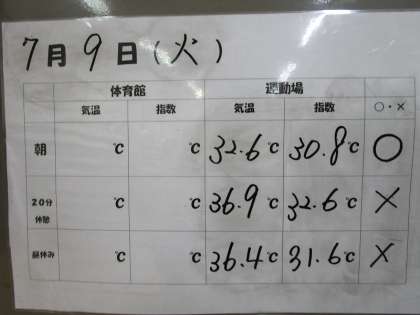 7月9日(火)
体育館 運動場
気温 指数 気温 指数 ○・×
朝 ℃ ℃ 32.6℃ 30.8℃ ○
20分休憩 ℃ ℃ 36.9℃ 32.6℃ ×
昼休み ℃ ℃ 36.4℃ 31.6℃ ×